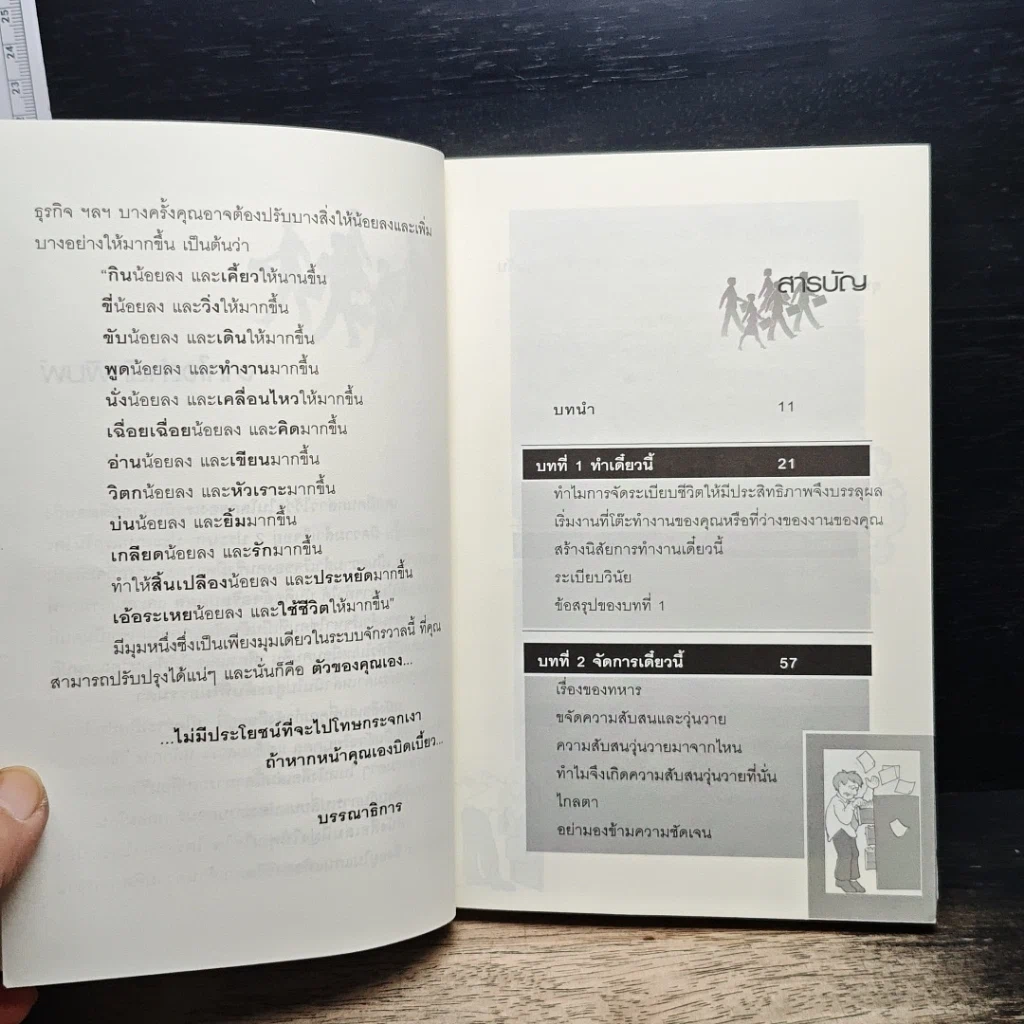 25
24
23
ธุรกิจ ฯลฯ บางครั้งคุณอาจต้องปรับบางสิ่งให้น้อยลงและเพิ่ม
บางอย่างให้มากขึ้น เป็นต้นว่า
“กินน้อยลง และเคี้ยวให้นานขึ้น
ขี่น้อยลง และวิ่งให้มากขึ้น
ขับน้อยลง และเดินให้มากขึ้น
พูดน้อยลง และทำงานมากขึ้น
นั่งน้อยลง และเคลื่อนไหวให้มากขึ้น
เฉื่อยเฉื่อยน้อยลง และคิดมากขึ้น
อ่านน้อยลง และเขียนมากขึ้น
วิตกน้อยลง และหัวเราะมากขึ้น
บ่นน้อยลง และยิ้มมากขึ้น
เกลียดน้อยลง และรักมากขึ้น
ทำให้สิ้นเปลืองน้อยลง และประหยัดมากขึ้น
เอ้อระเหยน้อยลง และใช้ชีวิตให้มากขึ้น”
มีมุมหนึ่งซึ่งเป็นเพียงมุมเดียวในระบบจักรวาลนี้ ที่คุณ
สามารถปรับปรุงได้แน่ๆ และนั่นก็คือ ตัวของคุณเอง...
...ไม่มีประโยชน์ที่จะไปโทษกระจกเงา
ถ้าหากหน้าคุณเองบิดเบี้ยว...
บรรณาธิการ
สารบัญ
บทนำ 11
บทที่ 1 ทำเดี๋ยวนี้ 21
ทำไมการจัดระเบียบชีวิตให้มีประสิทธิภาพจึงบรรลุผล
เริ่มงานที่โต๊ะทำงานของคุณหรือที่ว่างของงานของคุณ
สร้างนิสัยการทำงานเดี๋ยวนี้
ระเบียบวินัย
ข้อสรุปของบทที่ 1
บทที่ 2 จัดการเดี๋ยวนี้ 57
เรื่องของทหาร
ขจัดความสับสนและวุ่นวาย
ความสับสนวุ่นวายมาจากไหน
ทำไมจึงเกิดความสับสนวุ่นวายที่นั่น
ไกลตา
อย่ามองข้ามความชัดเจน